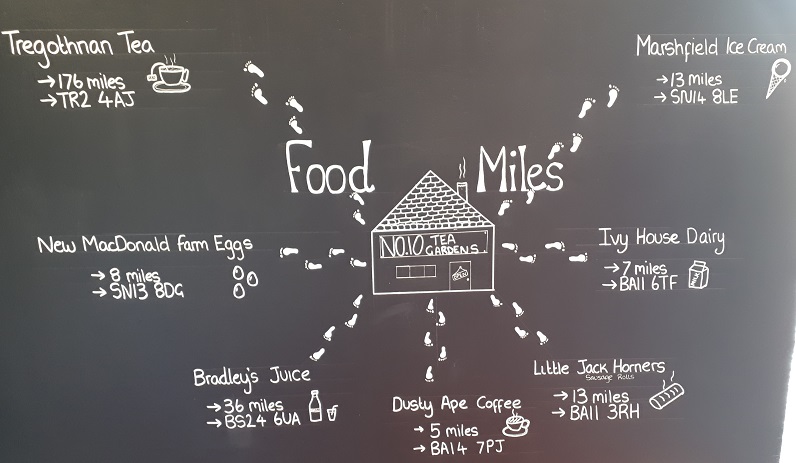 Tregothnan Tea
→176 miles
→TR2 4AJ
Marshfield Ice Cream
→13 miles
→SN14 8LE
Food Miles
NO.10 TEA GARDENS
OPEN
New MacDonald Farm Eggs
→8 miles
→SN13 8DG
Ivy House Dairy
→7 miles
→BA11 6TF
MILK
Bradley's Juice
→36 miles
→BS24 6UA
Dusty Ape Coffee
→5 miles
→BA14 7PJ
Little Jack Horners
Sausage Rolls
→13 miles
→BA11 3RH